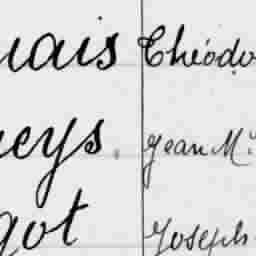 uais Théodo
neys. Jean M.
got Joseph